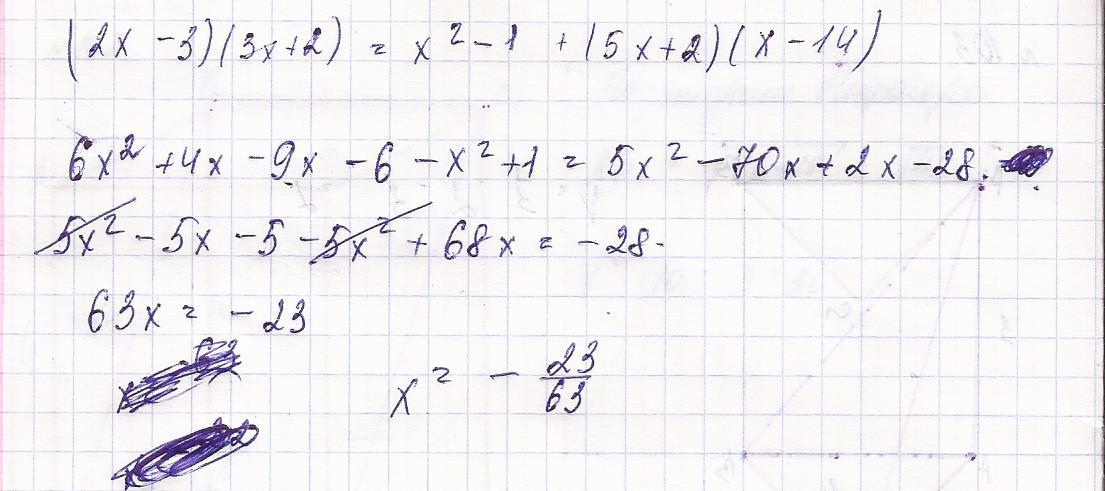 (2x - 3)(3x + 2) = x² - 1 + (5x + 2)(x - 14)
6x² + 4x - 9x - 6 - x² + 1 = 5x² - 70x + 2x - 28.
5x² - 5x - 5 - 5x² + 68x = -28.
63x = -23
x = - 23/63